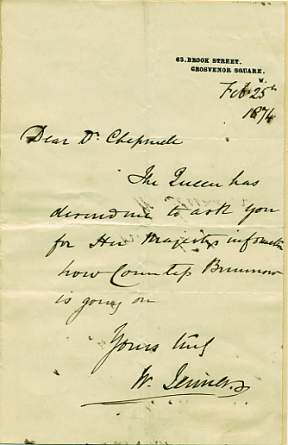 63. BROOK STREET.
GROSVENOR SQUARE.
W.
Feb 25th
1874
Dear Dr.
The Queen has
desired me to ask you
for Her Majesty's information
how Countess Brunnow
is going on
Yours truly
W. Jenner